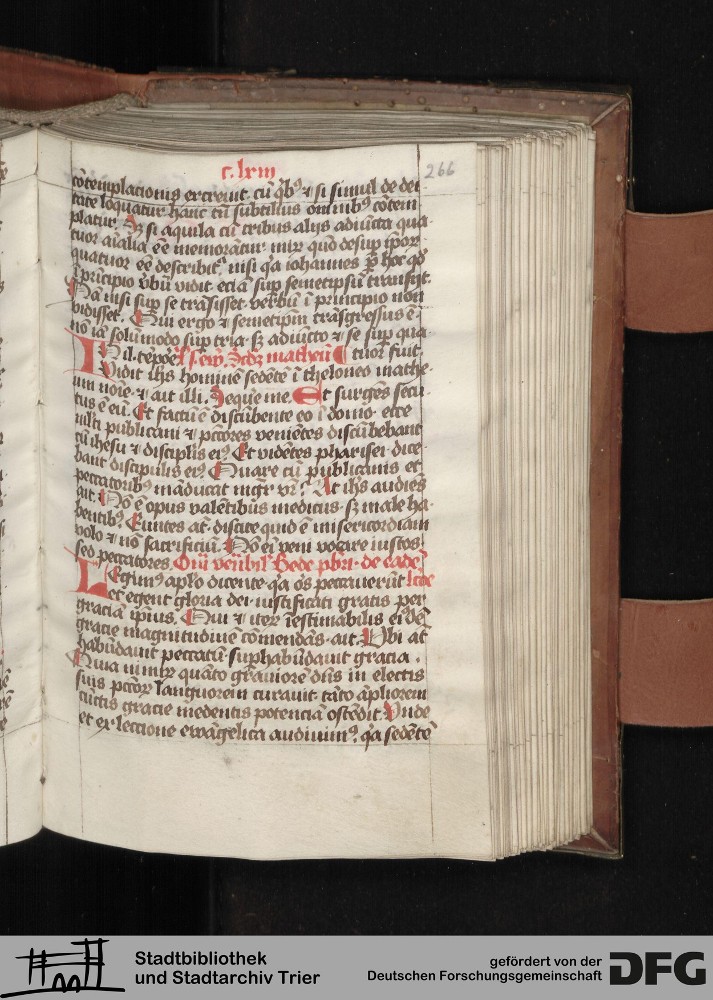 c. lxiii
266
cōtemplacionis excreuit. cū qͥbꝰ ⁊ si simul de dei
tate loquatur hanc tū subtilius omnibꝰ cōtem
platur. Sꝫ si aquila cū tribus alijs adiūcta qua
tuor aīalia eē memorātur mirū quō desup ip̄oꝝ
quatuor eē describit᷑. nisi qꝛ iohannes p̄ hoc qd̓
ī principio v̓bū vidit. eciā sup semetipsū transijt.
Nā nisi sup se trāsisset. verbū ī principio non
vidisset. Qui ergo ⁊ semetip̄m trāsgressus ē.
nō iā solūmodo sup tria. sꝫ adiūcto ⁊ se sup qua
tuor fuit.
In il. tēpoē. scd̓ꝫ matheū
Vidit ih̄s hominē sedētē ī theloneo mathe
um noīe. ⁊ ait illi. Seque̓ me. Et surgēs secu
tus ē eū. Et factū ē discūbente eo ī domo. ecce
multi publicani ⁊ pctōres veniētes discūbebant
cū ihesu ⁊ disciplis eiꝰ. Et vidētes pharisei. dice
bant discipulis eiꝰ. Quare cū publicanis et
peccatoribꝰ māducat mgr̄ vr̄. At ih̄s audiēs
ait. Nō ē opus valētibus medicus. sꝫ male ha
bentibꝰ. Euntes at̄. discite quid ē misericordiam
volo ⁊ nō sacrificiū. Nō eī veni vocare iustos.
sed peccatores. Om̄ ven̓bil̓ Bede pb̓ri. de eadē
Legimꝰ aplo dicente. qꝛ om̄s peccauerūt lcīe
et egent gloria dei. iustificati gratis per
graciā ipīus. Qui ⁊ iteꝝ īestimabilis ei dē
gracie magnitudinē cōmendās. ait. Vbi at̄
habūdauit peccatū. suphabūdauit gracia.
Quia nimirꝝ quāto grauiorē dn̄s in electis
suis pctōꝝ languorem curauit. tāto āpliorem
cūctis gracie medentis potenciā ostēdit. Vnde
et ex leccione ewāgelica audiuimꝰ. qꝛ sedētē
Stadtbibliothek
und Stadtarchiv Trier
gefördert von der
Deutschen Forschungsgemeinschaft
DFG